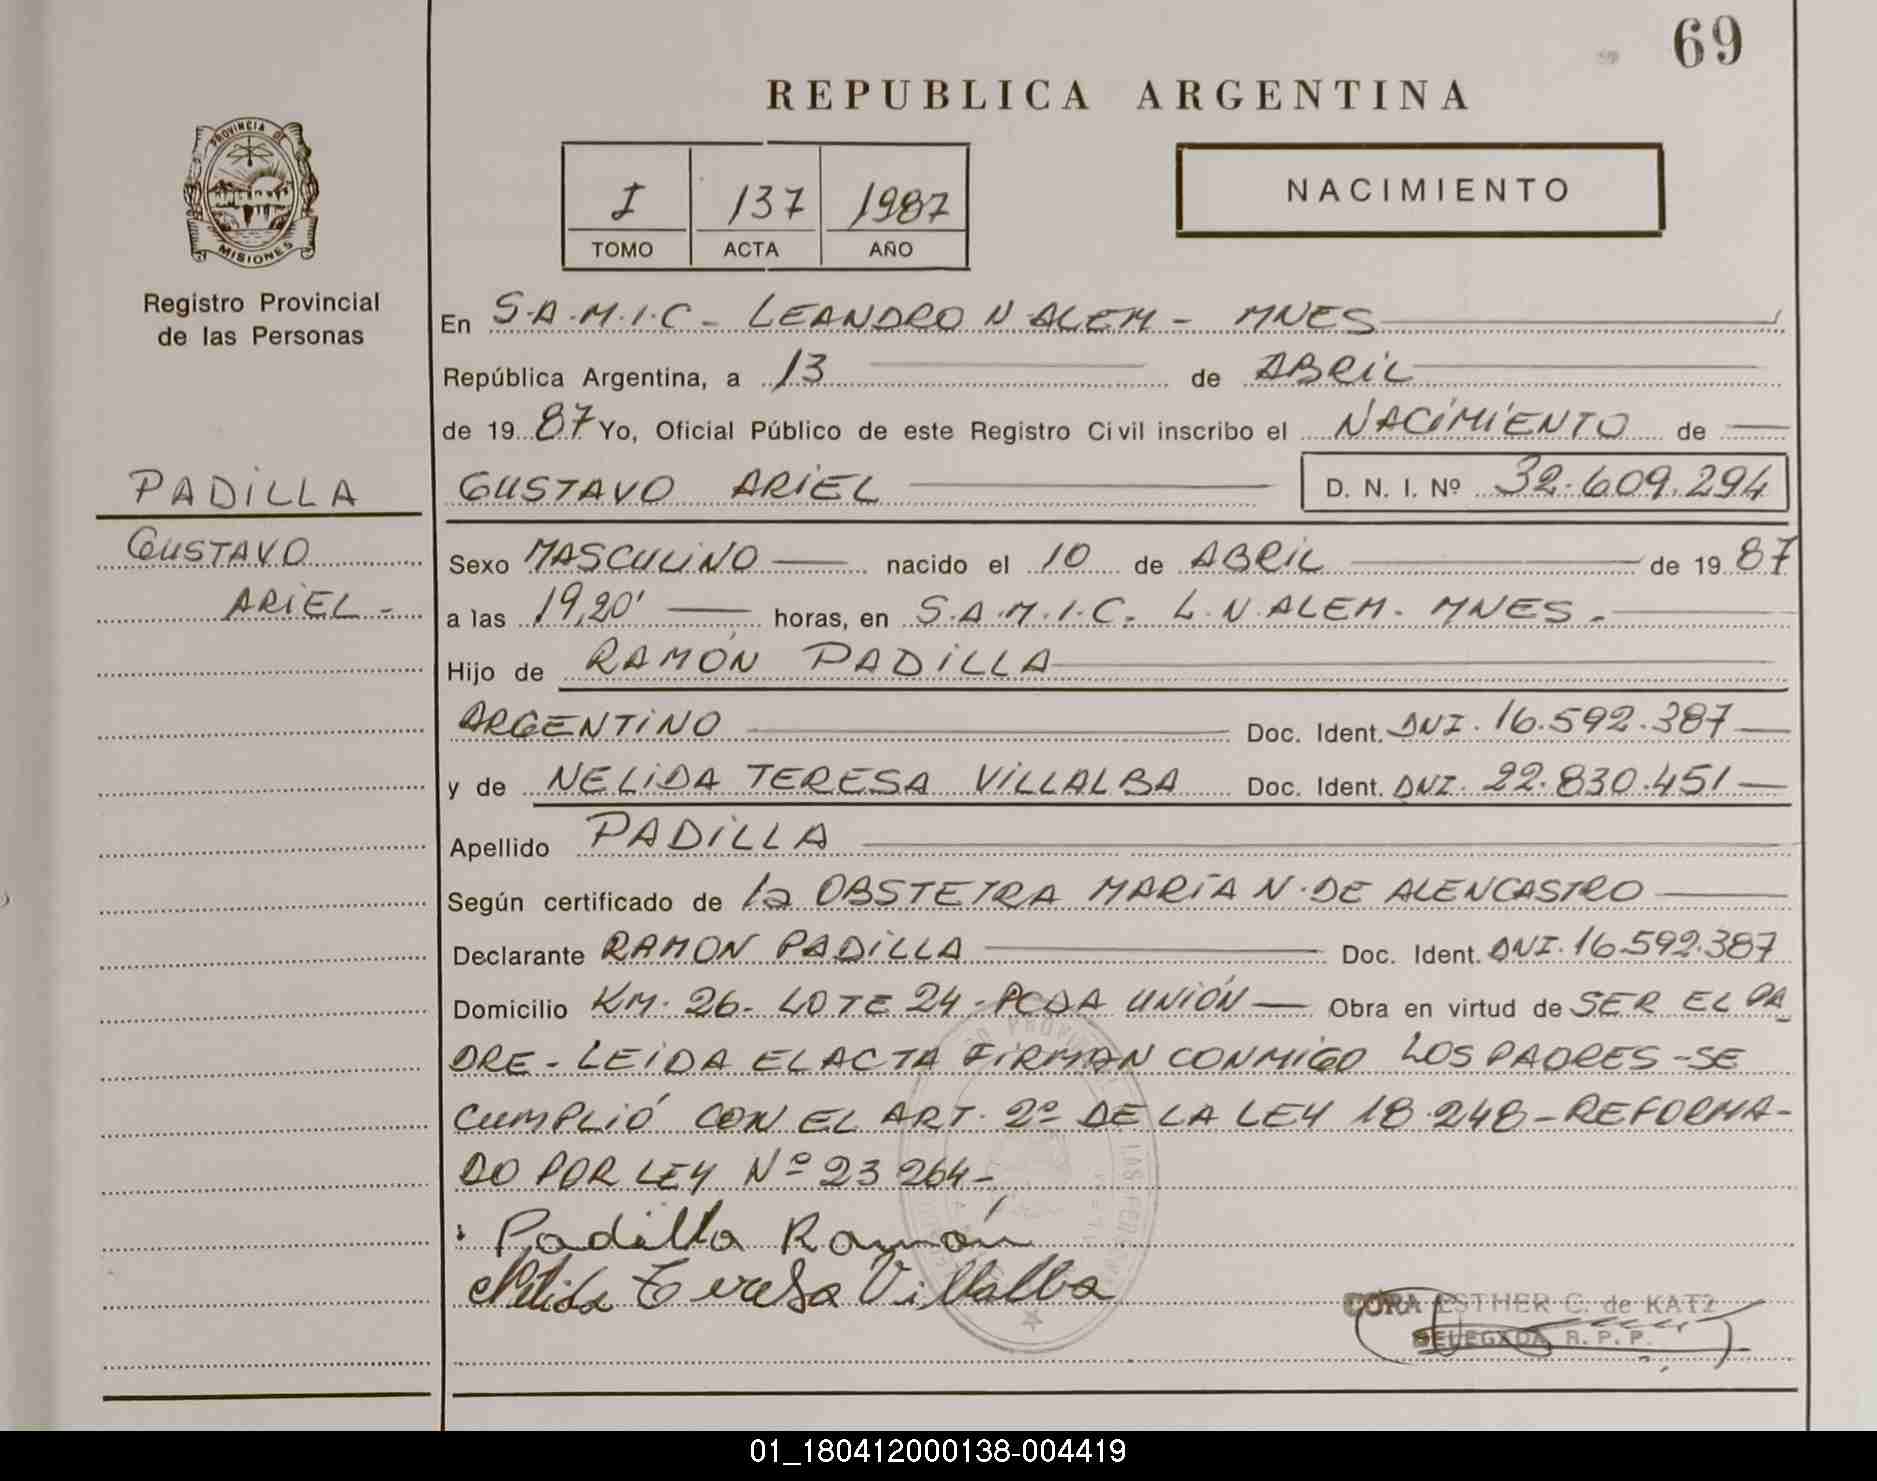 69
REPUBLICA ARGENTINA
PROVINCIA DE
MISIONES
Registro Provincial
de las Personas
I 137 1987
TOMO ACTA AÑO
NACIMIENTO
En S.A.M.I.C - LEANDRO N. ALEM - MNES
República Argentina, a 13 de ABRIL
de 19 87 Yo, Oficial Público de este Registro Civil inscribo el NACIMIENTO de
PADILLA
GUSTAVO
ARIEL -
GUSTAVO ARIEL D. N. I. Nº 32.609.294
Sexo MASCULINO nacido el 10 de ABRIL de 19 87
a las 19,20' horas, en S.A.M.I.C. L.N. ALEM. MNES.-
Hijo de RAMÓN PADILLA
ARGENTINO Doc. Ident. DNI. 16.592.387
y de NELIDA TERESA VILLALBA Doc. Ident. DNI. 22.830.451
Apellido PADILLA
Según certificado de la OBSTETRA MARÍA N. DE ALENCASTRO
Declarante RAMON PADILLA Doc. Ident. DNI. 16.592.387
Domicilio KM. 26 - LOTE 24 - PCDA UNIÓN Obra en virtud de SER EL PA
DRE - LEIDA EL ACTA FIRMAN CONMIGO LOS PADRES - SE
CUMPLIÓ CON EL ART. 2º DE LA LEY 18.248 - REFORMA-
DO POR LEY Nº 23264 -
Padilla Ramón
Nelida Teresa Villalba
CORA ESTHER C. de KATZ
DELEGADA R. P. P.
01_180412000138-004419